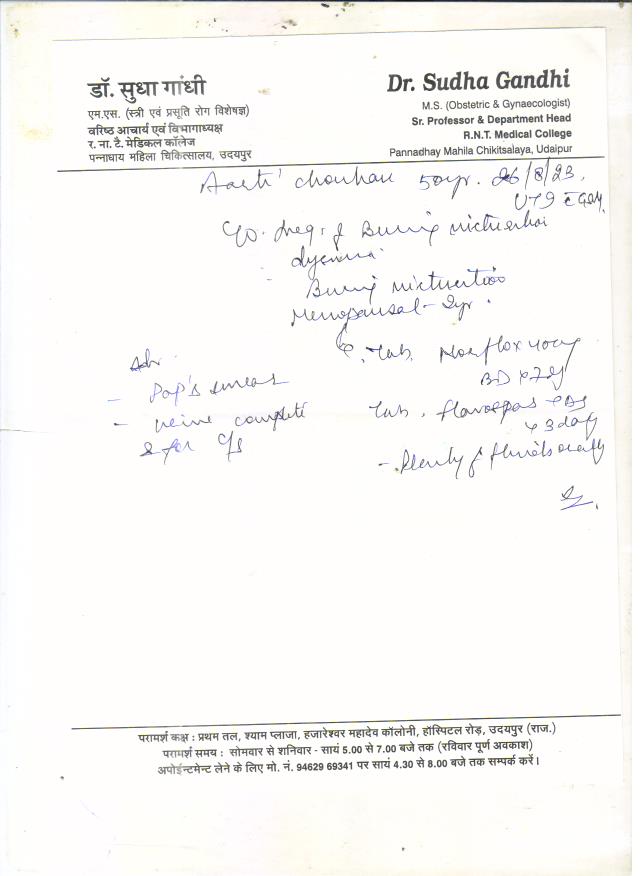 डॉ. सुधा गांधी
एम.एस. (स्त्री एवं प्रसूति रोग विशेषज्ञ)
वरिष्ठ आचार्य एवं विभागाध्यक्ष
र. ना. टै. मेडिकल कॉलेज
पन्नाधाय महिला चिकित्सालय, उदयपुर
Dr. Sudha Gandhi
M.S. (Obstetric & Gynaecologist)
Sr. Professor & Department Head
R.N.T. Medical College
Pannadhay Mahila Chikitsalaya, Udaipur
Aarti chouhan 50yr. 26/8/23.
C/o.
Burning micturition
Menopausal - 2yr.
Adv.
- Pap's smear
- urine complete
& for C/s
Tab. Norflox 400mg
BD x 7d
Tab.
x 3 day
- Plenty of fluids orally
परामर्श कक्ष : प्रथम तल, श्याम प्लाजा, हजारेश्वर महादेव कॉलोनी, हॉस्पिटल रोड़, उदयपुर (राज.)
परामर्श समय : सोमवार से शनिवार - सायं 5.00 से 7.00 बजे तक (रविवार पूर्ण अवकाश)
अपोईन्टमेन्ट लेने के लिए मो. नं. 94629 69341 पर सायं 4.30 से 8.00 बजे तक सम्पर्क करें।